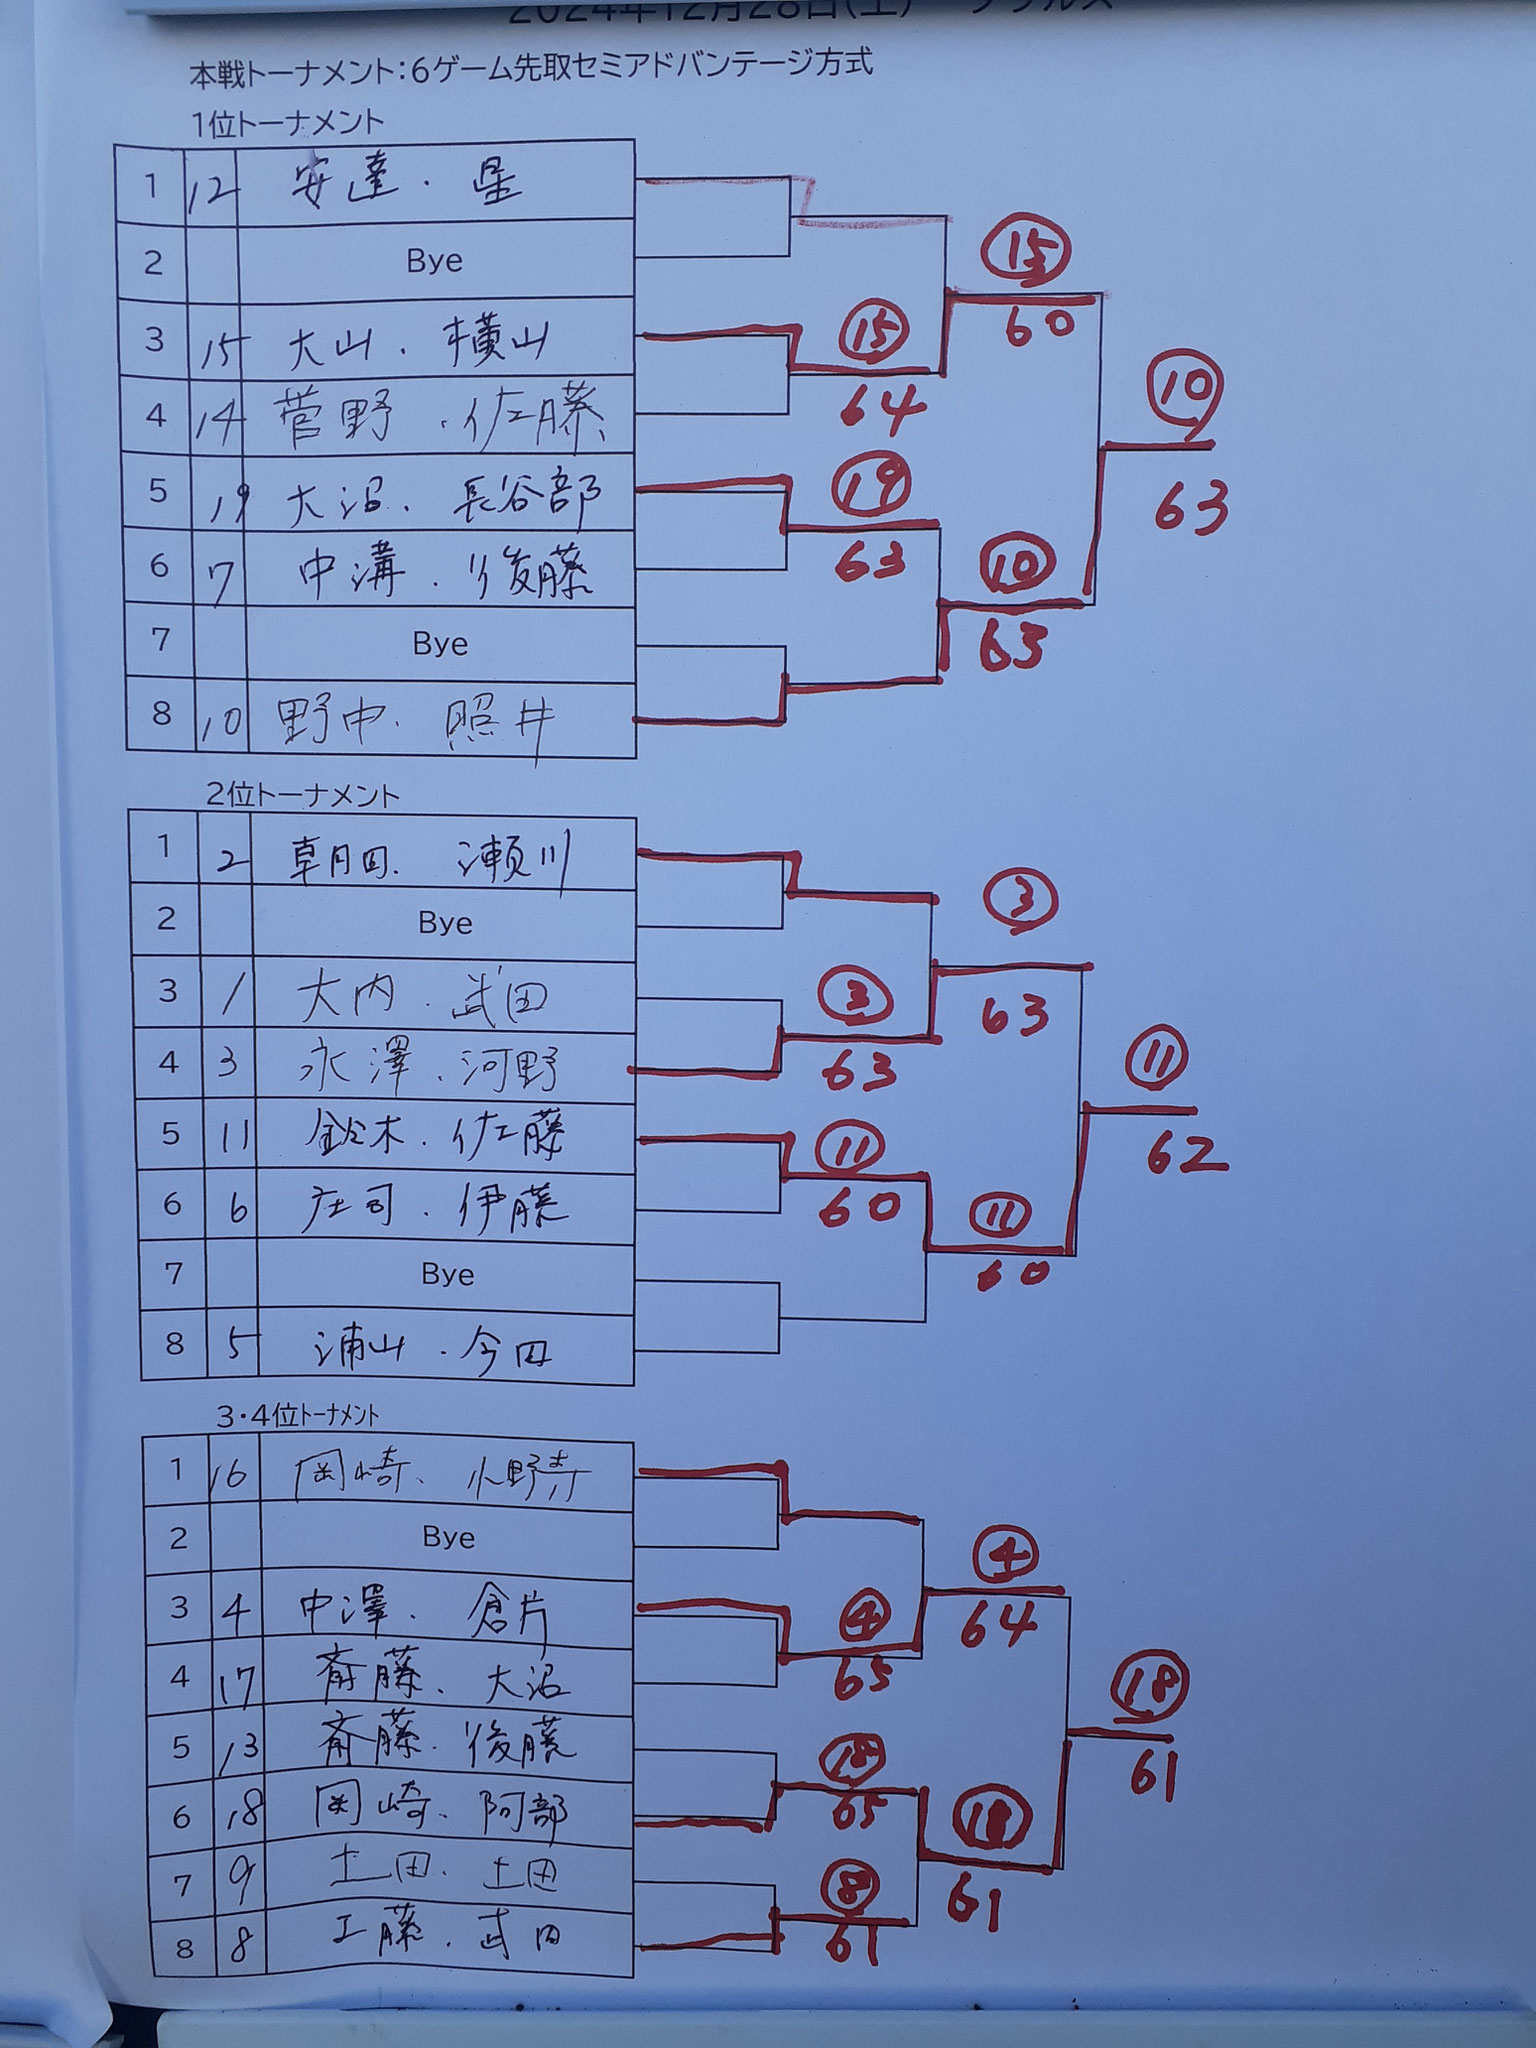 2024年12月28日(土) ダブルス
本戦トーナメント：6ゲーム先取セミアドバンテージ方式
1位トーナメント
1 12 安達・星
2 Bye
3 15 大山・横山
4 14 菅野・佐藤
5 19 大沼・長谷部
6 7 中溝・後藤
7 Bye
8 10 野中・照井
⑮
60
⑮
64
⑩
63
⑲
63
⑩
63
2位トーナメント
1 2 朝日田・瀬川
2 Bye
3 1 大内・武田
4 3 永澤・河野
5 11 鈴木・佐藤
6 6 庄司・伊藤
7 Bye
8 5 浦山・今田
③
63
③
63
⑪
62
⑪
60
⑪
60
3・4位トーナメント
1 16 岡崎・小野寺
2 Bye
3 4 中澤・倉片
4 17 斎藤・大沼
5 13 斎藤・後藤
6 18 岡崎・阿部
7 9 土田・土田
8 8 工藤・武田
④
64
④
65
⑱
61
⑱
65
⑱
61
⑧
61